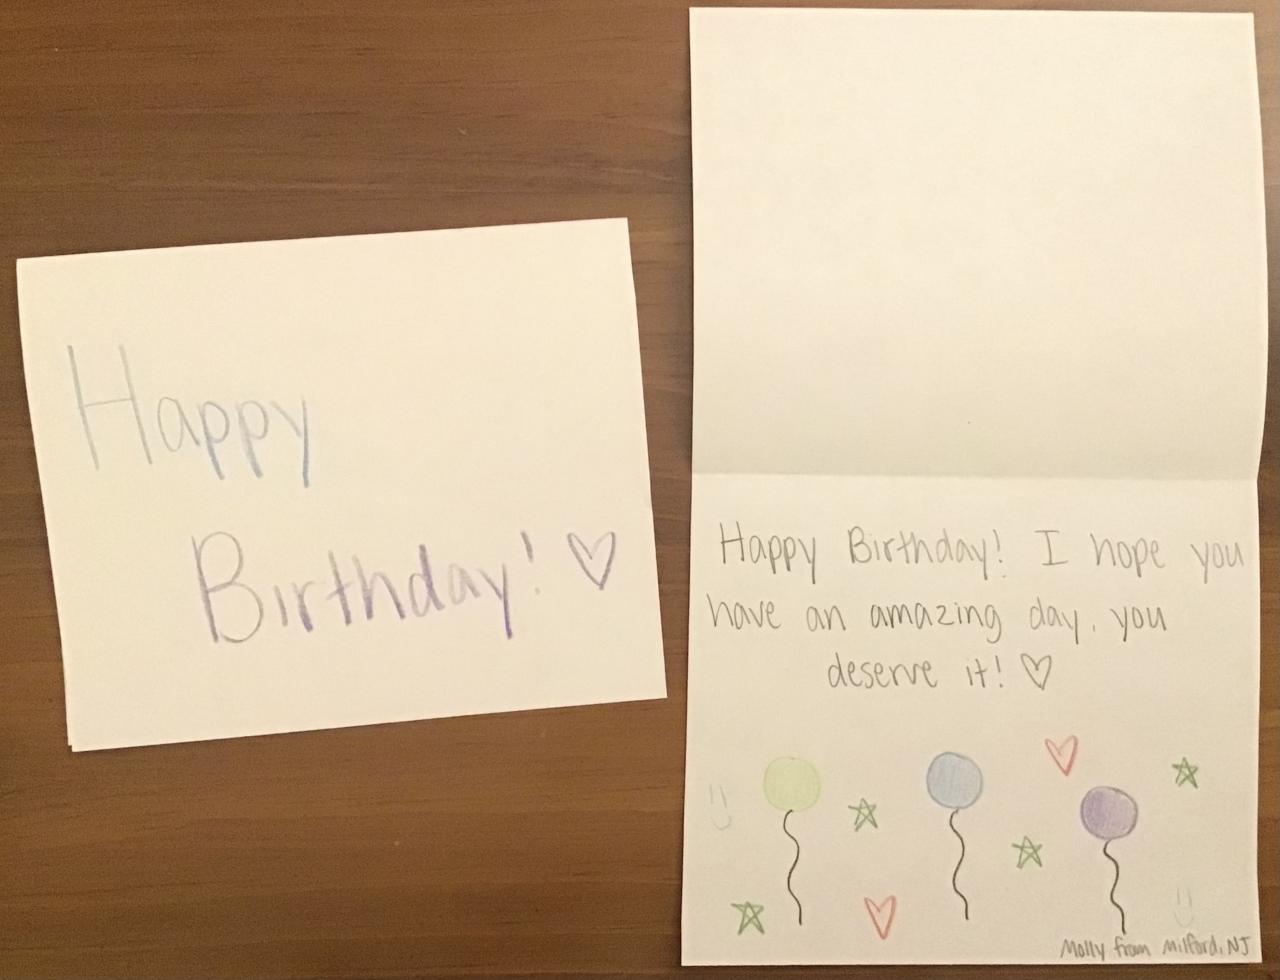 Happy
Birthday! ♡
Happy Birthday! I hope you
have an amazing day, you
deserve it! ♡
Molly from Milford, NJ